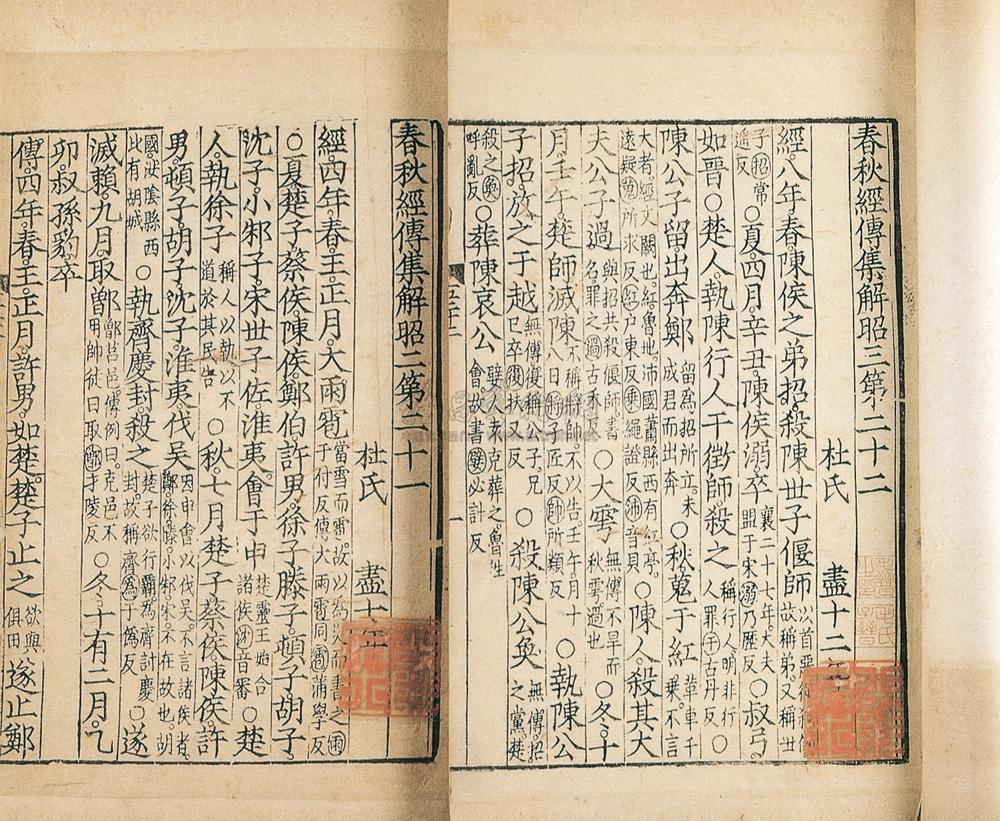 春秋經傳集解昭三第二十二
杜氏 盡十二年
經八年春陳侯之弟招殺陳世子偃師以首惡從殺例故稱弟又稱世
子招常遥反○夏四月辛丑陳侯溺卒襄二十七年大夫盟于宋溺乃歷反○叔弓
如晉○楚人執陳行人干徵師殺之稱行人明非行人罪干古丹反○
陳公子留出奔鄭留為招所立未成君而出奔○秋蒐于紅革車千乘不言
大者經文闕也紅魯地沛國蕭縣西有紅亭遠疑蒐所求反紅户東反乘繩證反沛音貝○陳人殺其大
夫公子過與招共殺偃師書名罪之過古禾反○大雩無傳不旱而秋雩過也○冬十
月壬午楚師滅陳不稱將帥不以告壬午月十八日將子匠反帥所類反○執陳公
子招放之于越無傳復稱公子兄已卒復扶又反○殺陳公奐無傳招之黨楚
殺之奐呼亂反○葬陳哀公嬖人袁克葬之魯往會故書嬖必計反
春秋經傳集解昭二第二十一
杜氏 盡七年
經四年春王正月大雨雹當雪而雹故以為災而書之雨于付反傳大雨雹同雹蒲學反
○夏楚子蔡侯陳侯鄭伯許男徐子滕子頓子胡子
沈子小邾子宋世子佐淮夷會于申楚靈王始合諸侯沈音審○楚
人執徐子稱人以執以不道於其民告○秋七月楚子蔡侯陳侯許
男頓子胡子沈子淮夷伐吴因申會以伐吴不言諸侯者鄭徐滕小邾宋不在故也胡
國汝陰縣西比有胡城○執齊慶封殺之楚子欲行霸為齊討慶封故稱齊為于偽反○遂
滅賴九月取鄫鄫莒邑傳例曰克邑不用師徒曰取鄫才陵反○冬十有二月乙
卯叔孫豹卒
傳四年春王正月許男如楚楚子止之欲與俱田遂止鄭